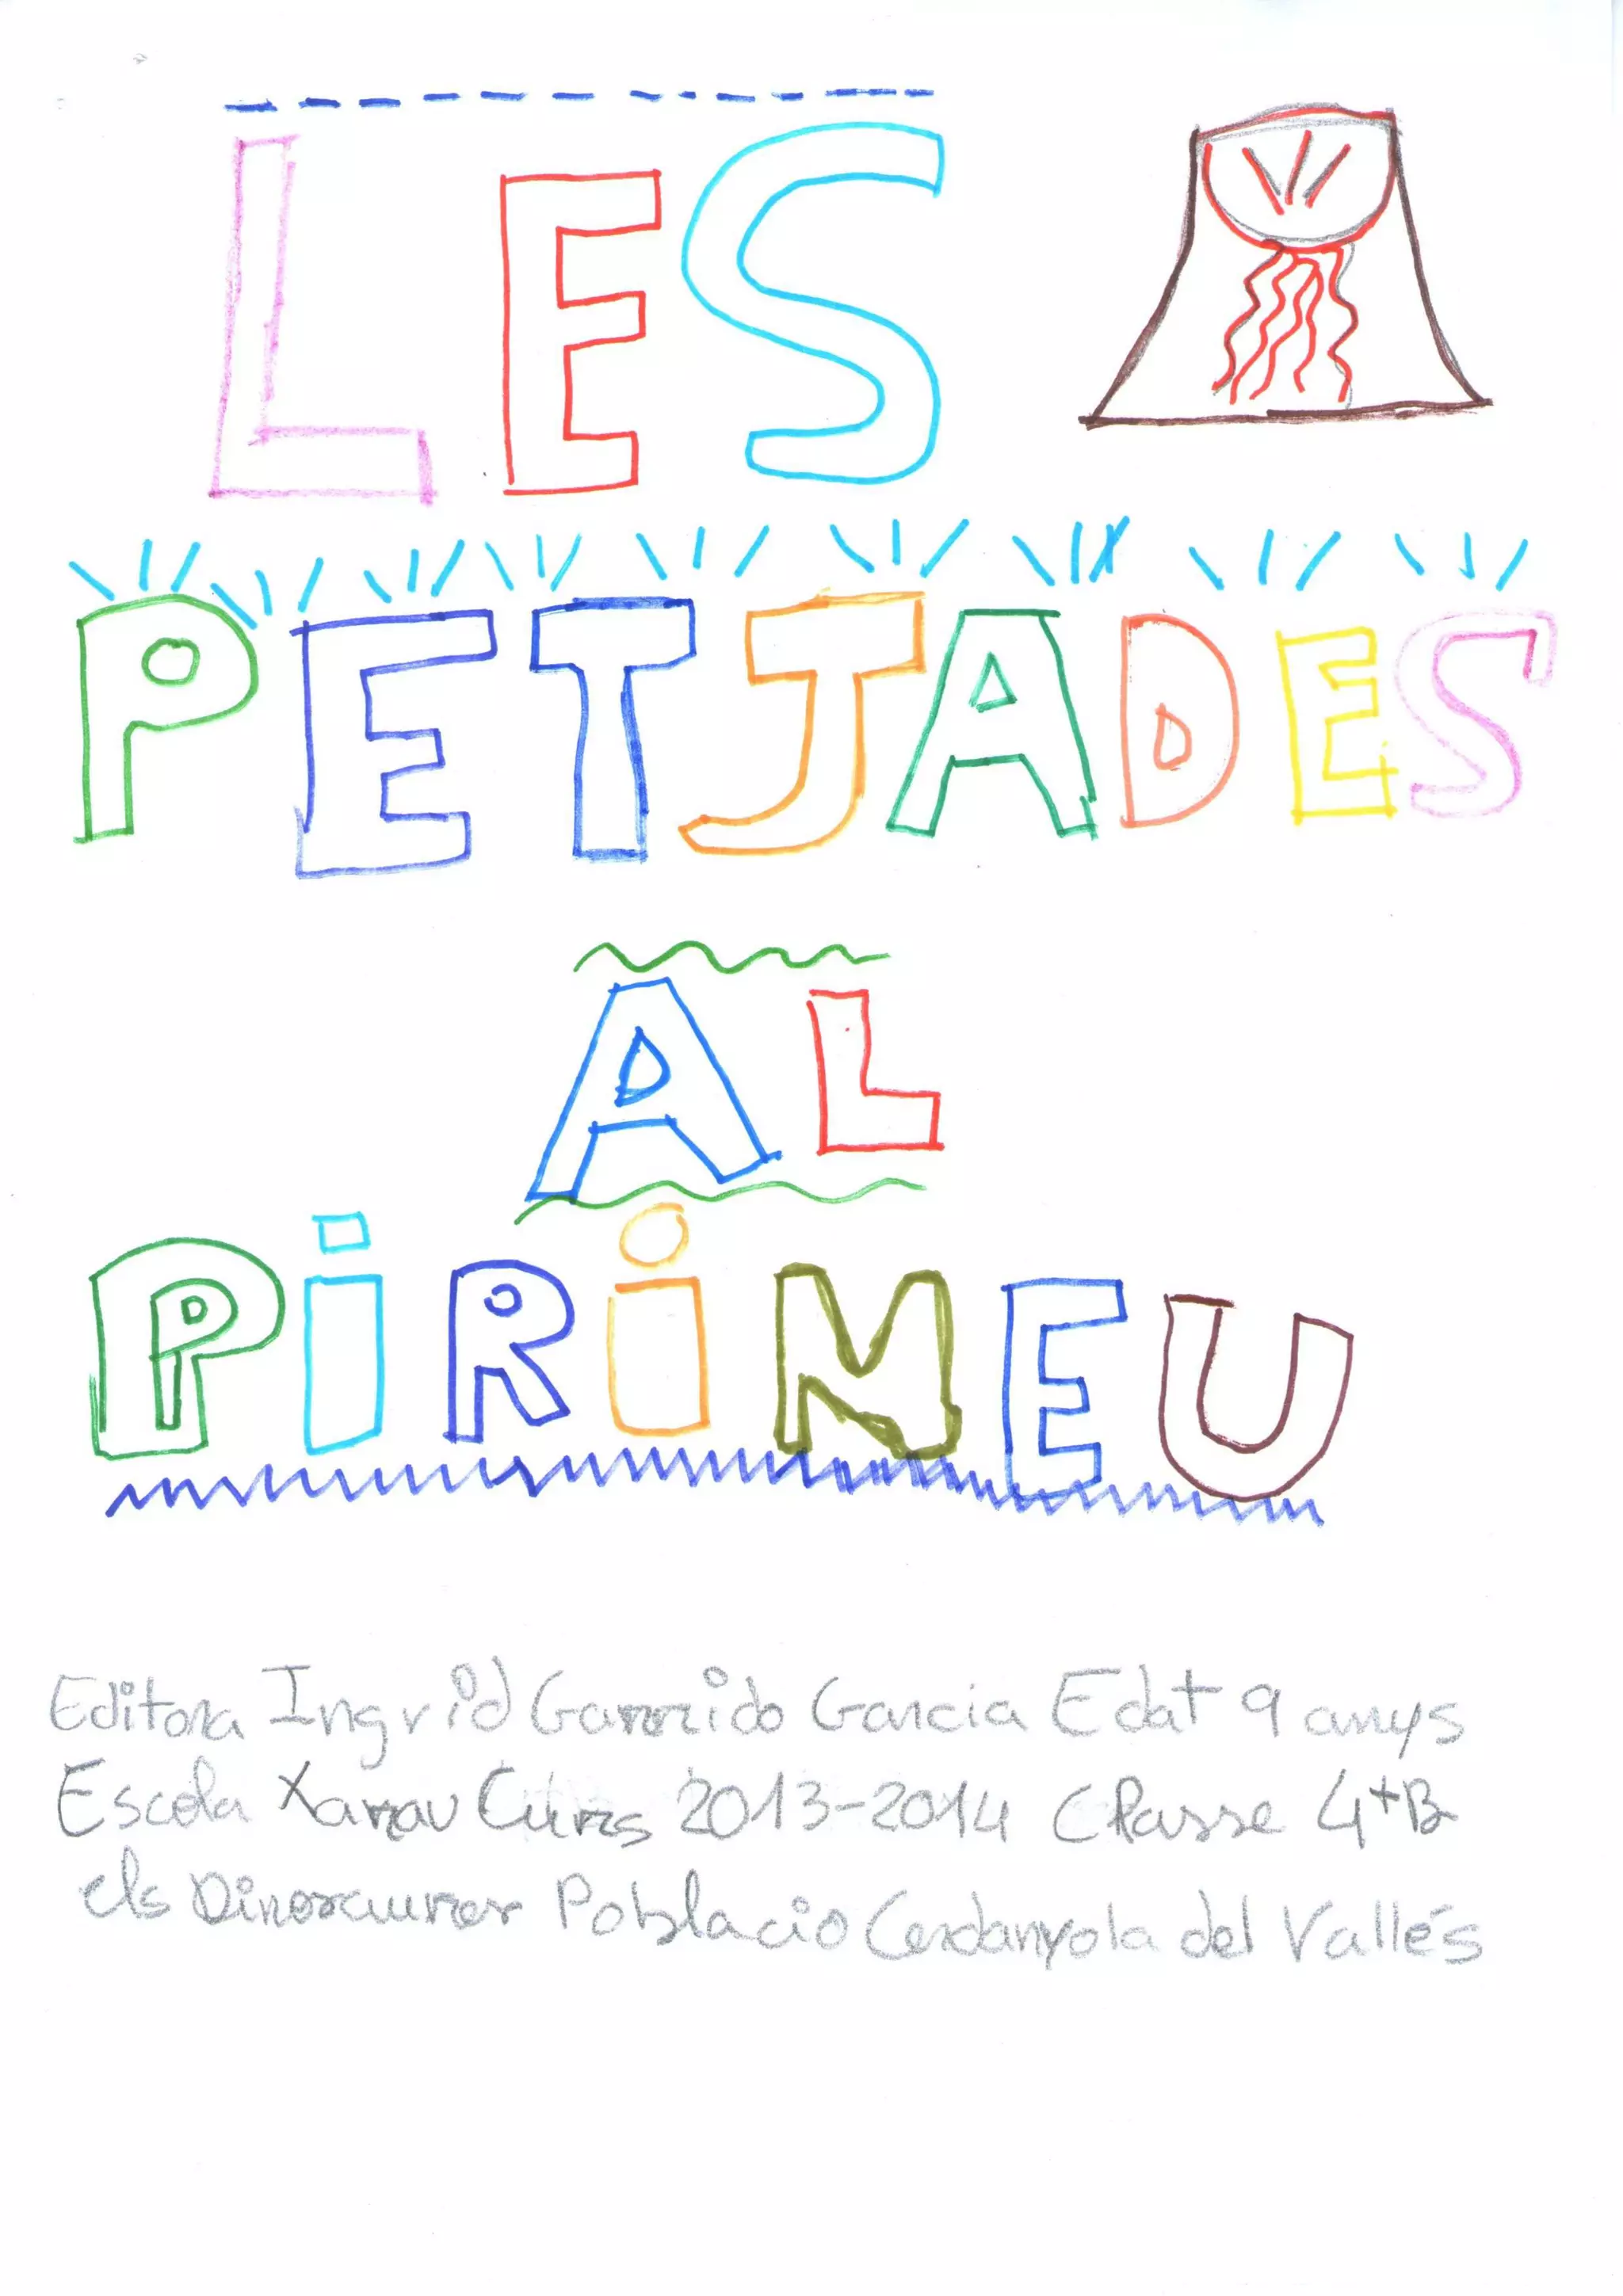 LES
PETJADES
AL
PiRiMEU
Editora Ingrid Garrido Garcia Edat 9 anys
Escola Xarau Curs 2013-2014 Classe 4tB
els Dinosaures Poblacio Cerdanyola del Vallés